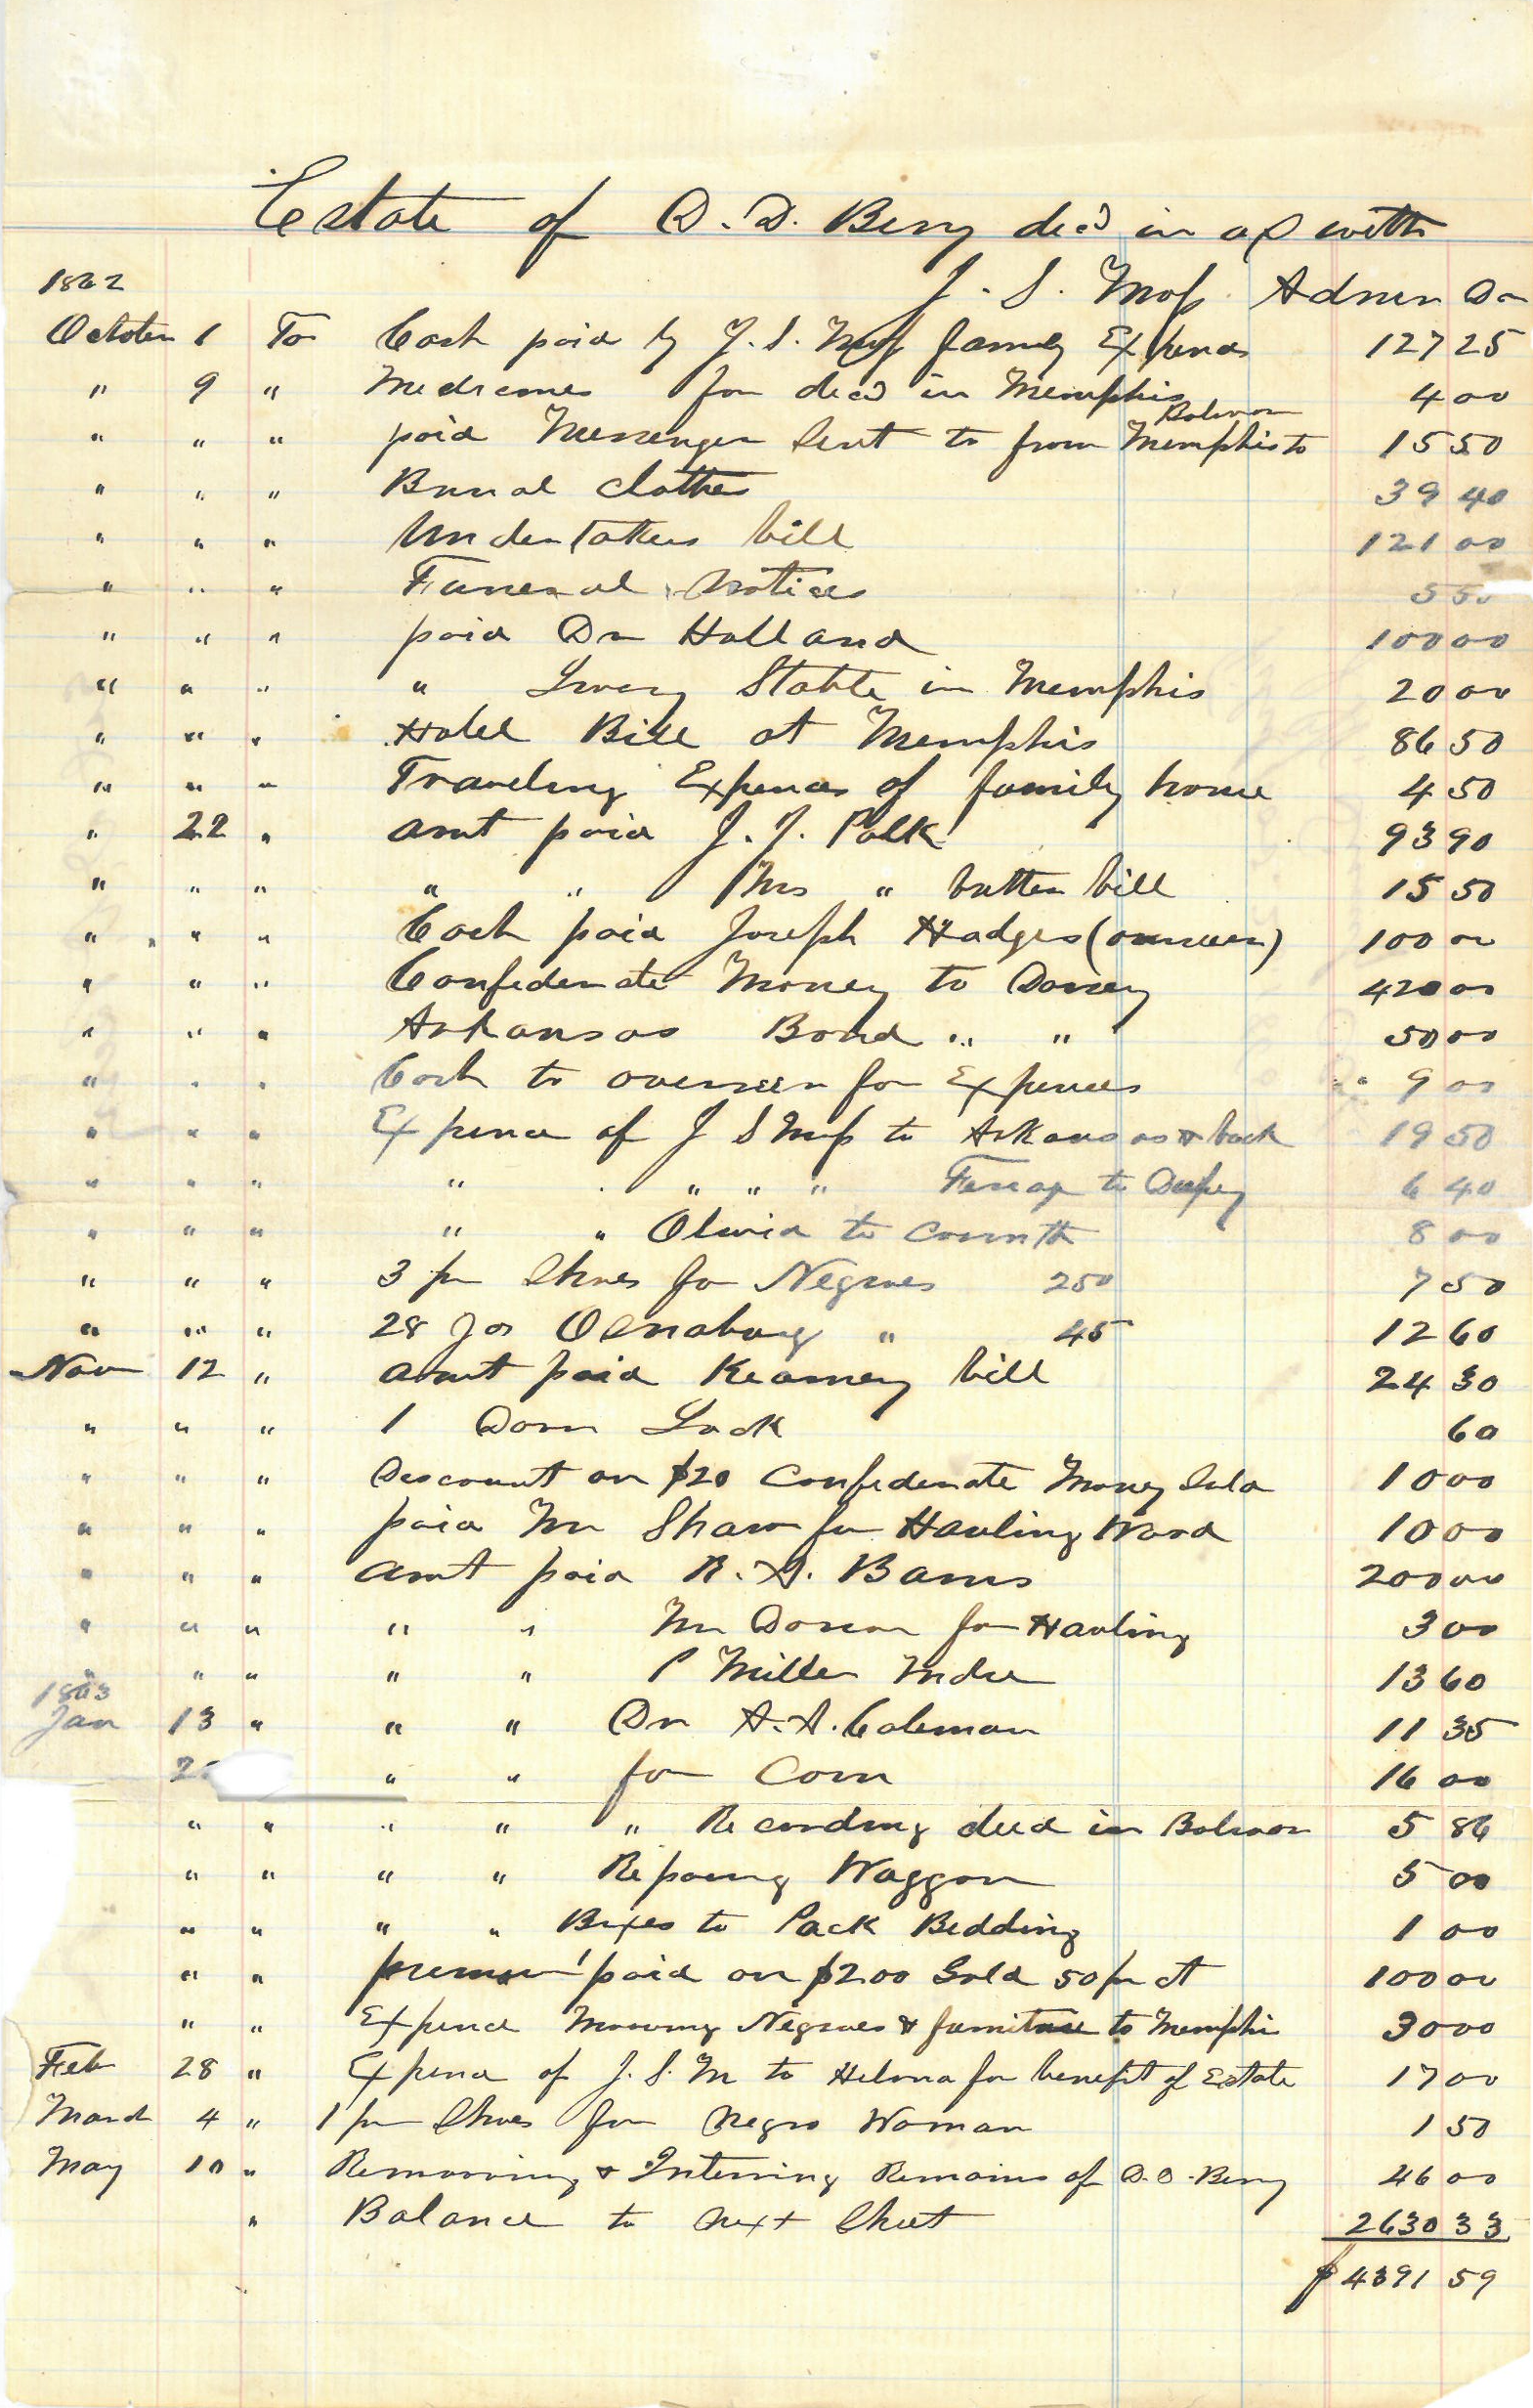 Estate of D. D. Berry decd in a/c with
J. S. Moss Admr Dr
1862
October 1 To Cash paid by J. S. Moss family Expenses 127 25
" 9 " Medicines for decd in Memphis 4 00
" " " paid Messenger Sent to from Memphis to Bolivar 15 50
" " " Burial clothes 39 40
" " " Undertakers bill 121 00
" " " Funeral Notices 5 50
" " " paid Dr Holland 100 00
" " " " Livery Stable in Memphis 20 00
" " " Hotel Bill at Memphis 86 50
" " " Traveling Expences of family home 4 50
" 22 " amt paid J. J. Polk 93 90
" " " " " Mrs " butter bill 15 50
" " " Cash paid Joseph Hodges (overseer) 100 00
" " " Confederate Money to Dorsey 420 00
" " " Arkansas Bond " " 50 00
" " " Cash to overseer for Expences 9 00
" " " Expence of J S Moss to Arkansas & back 19 50
" " " " " " " to 6 40
" " " " " Olivia to Corinth 8 00
" " " 3 pr Shoes for Negroes 250 7 50
" " " 28 yds Osnaburg " 45 12 60
Nov 12 " amt paid Kearney bill 24 30
" " " 1 Door Lock 60
" " " Discount on $20 Confederate Money Sold 10 00
" " " paid Mr Shaw for Hauling Wood 10 00
" " " amt paid R. A. 200 00
" " " " " Mr for Hauling 3 00
" " " " " P Miller Mdse 13 60
1863
Jan 13 " " " Dr A. A. Coleman 11 35
" " for Corn 16 00
" " " " " Recording deed in Bolivar 5 86
" " " " Reparing Waggon 5 00
" " " " Boxes to Pack Bedding 1 00
" " premium paid on $200 Gold 50 pr ct 100 00
" " Expence Moving Negroes & furniture to Memphis 30 00
Feb 28 " Expence of J. S. M to Helena for benefit of Estate 17 00
March 4 " 1 pr Shoes for Negro Woman 1 50
May 10 " Removing & Interring Remains of D. D. Berry 46 00
" Balance to Next Sheet 2630 33
$ 4391 59